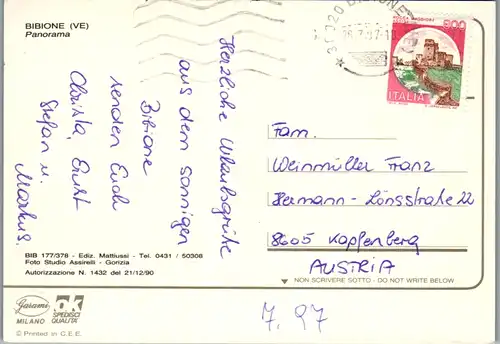 BIBIONE (VE)
Panorama
Herzliche Urlaubsgrüße
aus dem sonnigen
Bibione
senden Euch
Christa, Ernst
Stefan u.
Markus.
BIB 177/378 - Ediz. Mattiussi - Tel. 0431 / 50308
Foto Studio Assirelli - Gorizia
Autorizzazione N. 1432 del 21/12/90
Garami
MILANO
OK
SPEDISCI
QUALITA'
© Printed in C.E.E.
ITALIA
Fam.
Weinmüller Franz
Hermann-Lönsstraße 22
8605 Kapfenberg
AUSTRIA
NON SCRIVERE SOTTO - DO NOT WRITE BELOW
7. 97